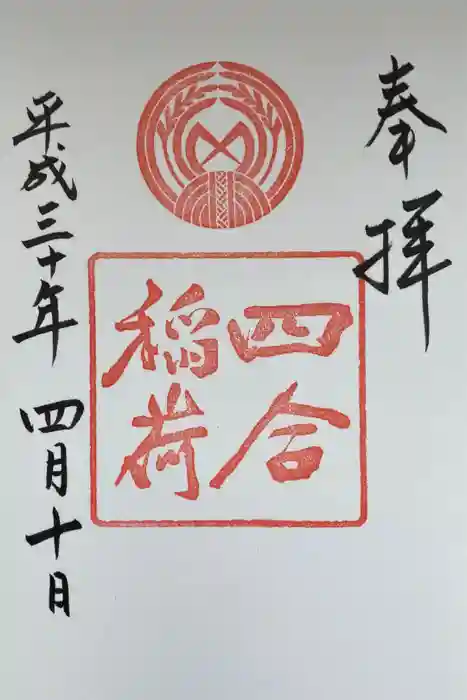 奉拝
四合
稲荷
平成三十年 四月十日